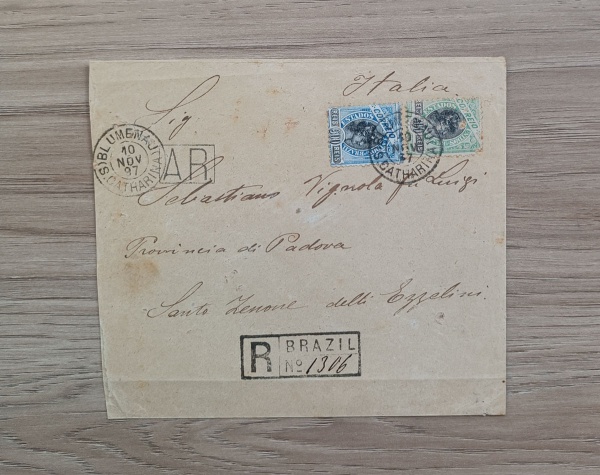 Italia.
Sig
BLUMENAU
10
NOV
97
(S. CATHARINA)
AR
ESTADOS
BLUMENAU
10
NOV
97
(S. CATHARINA)
Sebastiano Vignola fu Luigi
Provincia di Padova
Santo Zenone delli Ezzelini.
R
BRAZIL
Nº 1306